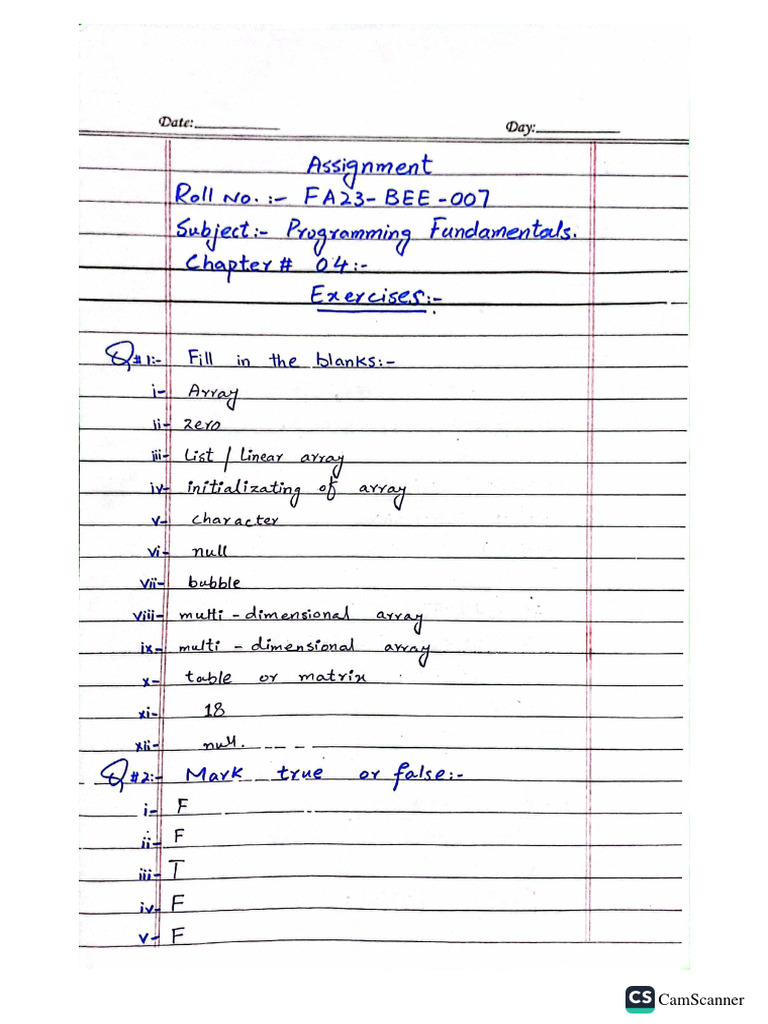 Date:
Day:
Assignment
Roll No.:- FA23-BEE-007
Subject:- Programming Fundamentals.
Chapter# 04:-
Exercises:-
Q#1:- Fill in the blanks:-
i- Array
ii- zero
iii- List / Linear array
iv- initializating of array
v- character
vi- null
vii- bubble
viii- multi-dimensional array
ix- multi-dimensional array
x- table or matrix
xi- 18
xii- null.
Q#2:- Mark true or false:-
i- F
ii- F
iii- T
iv- F
v- F
CS CamScanner